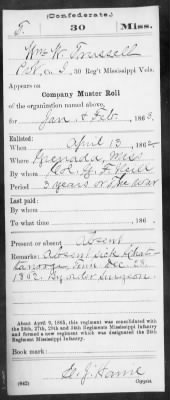 (Confederate.)
T. 30 Miss.
Wm W. Trussell
Pvt, Co. I, 30 Reg't Mississippi Vols.
Appears on
Company Muster Roll
of the organization named above,
for Jan & Feb, 1863.
Enlisted:
When April 13, 1862
Where Grenada, Miss
By whom Col. G. F. Neill
Period 3 years or the War
Last paid:
By whom
To what time , 186 .
Present or absent Absent
Remarks: Absent sick Chat-
tanooga Tenn Dec 23
1862. By order surgeon.
About April 9, 1865, this regiment was consolidated with
the 24th, 27th, 29th and 34th Regiments Mississippi Infantry
and formed a new regiment which was designated the 24th
Regiment Mississippi Infantry.
Book mark:
(642) Copyist.